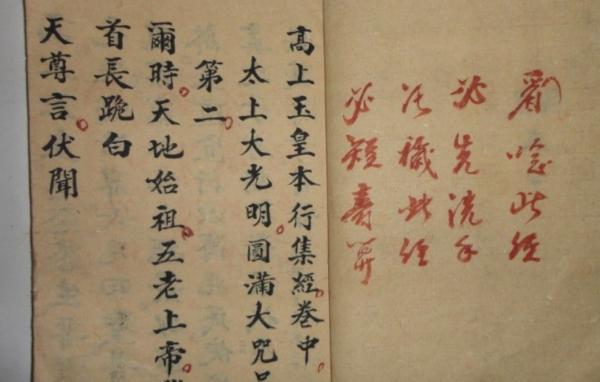 唸此經
必先洗手
污穢此經
必短壽算
高上玉皇本行集經卷中
太上大光明圓滿大咒品
第二
爾時天地始祖五老上帝
首長跪白
天尊言伏聞